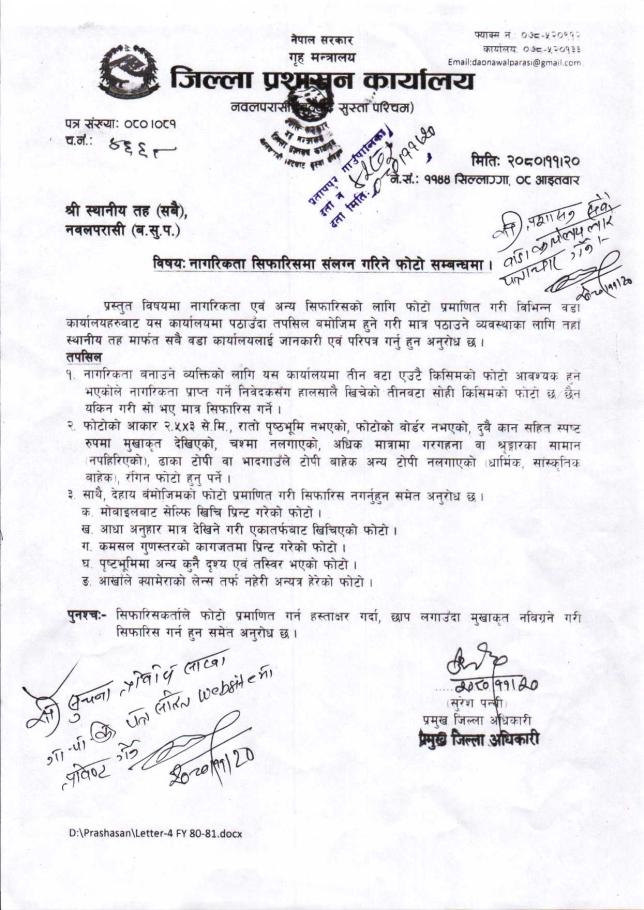 नेपाल सरकार
गृह मन्त्रालय
जिल्ला प्रशासन कार्यालय
नवलपरासी सुस्ता पश्चिम)
फ्याक्स नं : ०७८-५२०११२
कार्यालय: ०७८-५२०१३३
Email:daonawalparasi@gmail.com
पत्र संख्या: ०८०।०८१
च.नं.:
प्रतापपुर गाउँपालिका
दर्ता नं
दर्ता मिति:
मिति: २०८०।११।२०
ने.सं.: ११४४ सिल्लागा, ०८ आइतवार
श्री स्थानीय तह (सबै),
नवलपरासी (ब.सु.प.)
विषय: नागरिकता सिफारिसमा संलग्न गरिने फोटो सम्बन्धमा।
प्रस्तुत विषयमा नागरिकता एवं अन्य सिफारिसको लागि फोटो प्रमाणित गरी विभिन्न वडा
कार्यालयहरुबाट यस कार्यालयमा पठाउँदा तपसिल बमोजिम हुने गरी मात्र पठाउने व्यवस्थाका लागि तहाँ
स्थानीय तह मार्फत सबै वडा कार्यालयलाई जानकारी एवं परिपत्र गर्नु हुन अनुरोध छ।
तपसिल
१. नागरिकता बनाउने व्यक्तिको लागि यस कार्यालयमा तीन वटा एउटै किसिमको फोटो आवश्यक हुने
भएकोले नागरिकता प्राप्त गर्ने निवेदकसंग हालसालै खिचेको तीनवटा सोही किसिमको फोटो छ छैन
यकिन गरी सो भए मात्र सिफारिस गर्ने।
२. फोटोको आकार २.५x३ से.मि., रातो पृष्ठभूमि नभएको, फोटोको बोर्डर नभएको, दुबै कान सहित स्पष्ट
रुपमा मुखाकृत देखिएको, चश्मा नलगाएको, अधिक मात्रामा गरगहना वा श्रृङ्गारका सामान
(नपहिरिएको), ढाका टोपी वा भादगाउँले टोपी बाहेक अन्य टोपी नलगाएको (धार्मिक, सांस्कृतिक
बाहेक), रंगिन फोटो हुनु पर्ने।
३. साथै, देहाय बमोजिमको फोटो प्रमाणित गरी सिफारिस नगर्नुहुन समेत अनुरोध छ।
क. मोबाइलबाट सेल्फि खिचि प्रिन्ट गरेको फोटो।
ख. आधा अनुहार मात्र देखिने गरी एकातर्फबाट खिचिएको फोटो।
ग. कमसल गुणस्तरको कागजतमा प्रिन्ट गरेको फोटो।
घ. पृष्टभूमिमा अन्य कुनै दृश्य एवं तस्विर भएको फोटो।
ङ. आखाँले क्यामेराको लेन्स तर्फ नहेरी अन्यत्र हेरेको फोटो।
पुनश्चः- सिफारिसकर्ताले फोटो प्रमाणित गर्न हस्ताक्षर गर्दा, छाप लगाउँदा मुखाकृत नबिग्रने गरी
सिफारिस गर्न हुन समेत अनुरोध छ।
२०८०।११।२०
(सुरेश पन्थी)
प्रमुख जिल्ला अधिकारी
प्रमुख जिल्ला अधिकारी
श्री सुचना प्रविधि शाखा
Website मा
२०८०।११।२०
D:\Prashasan\Letter-4 FY 80-81.docx